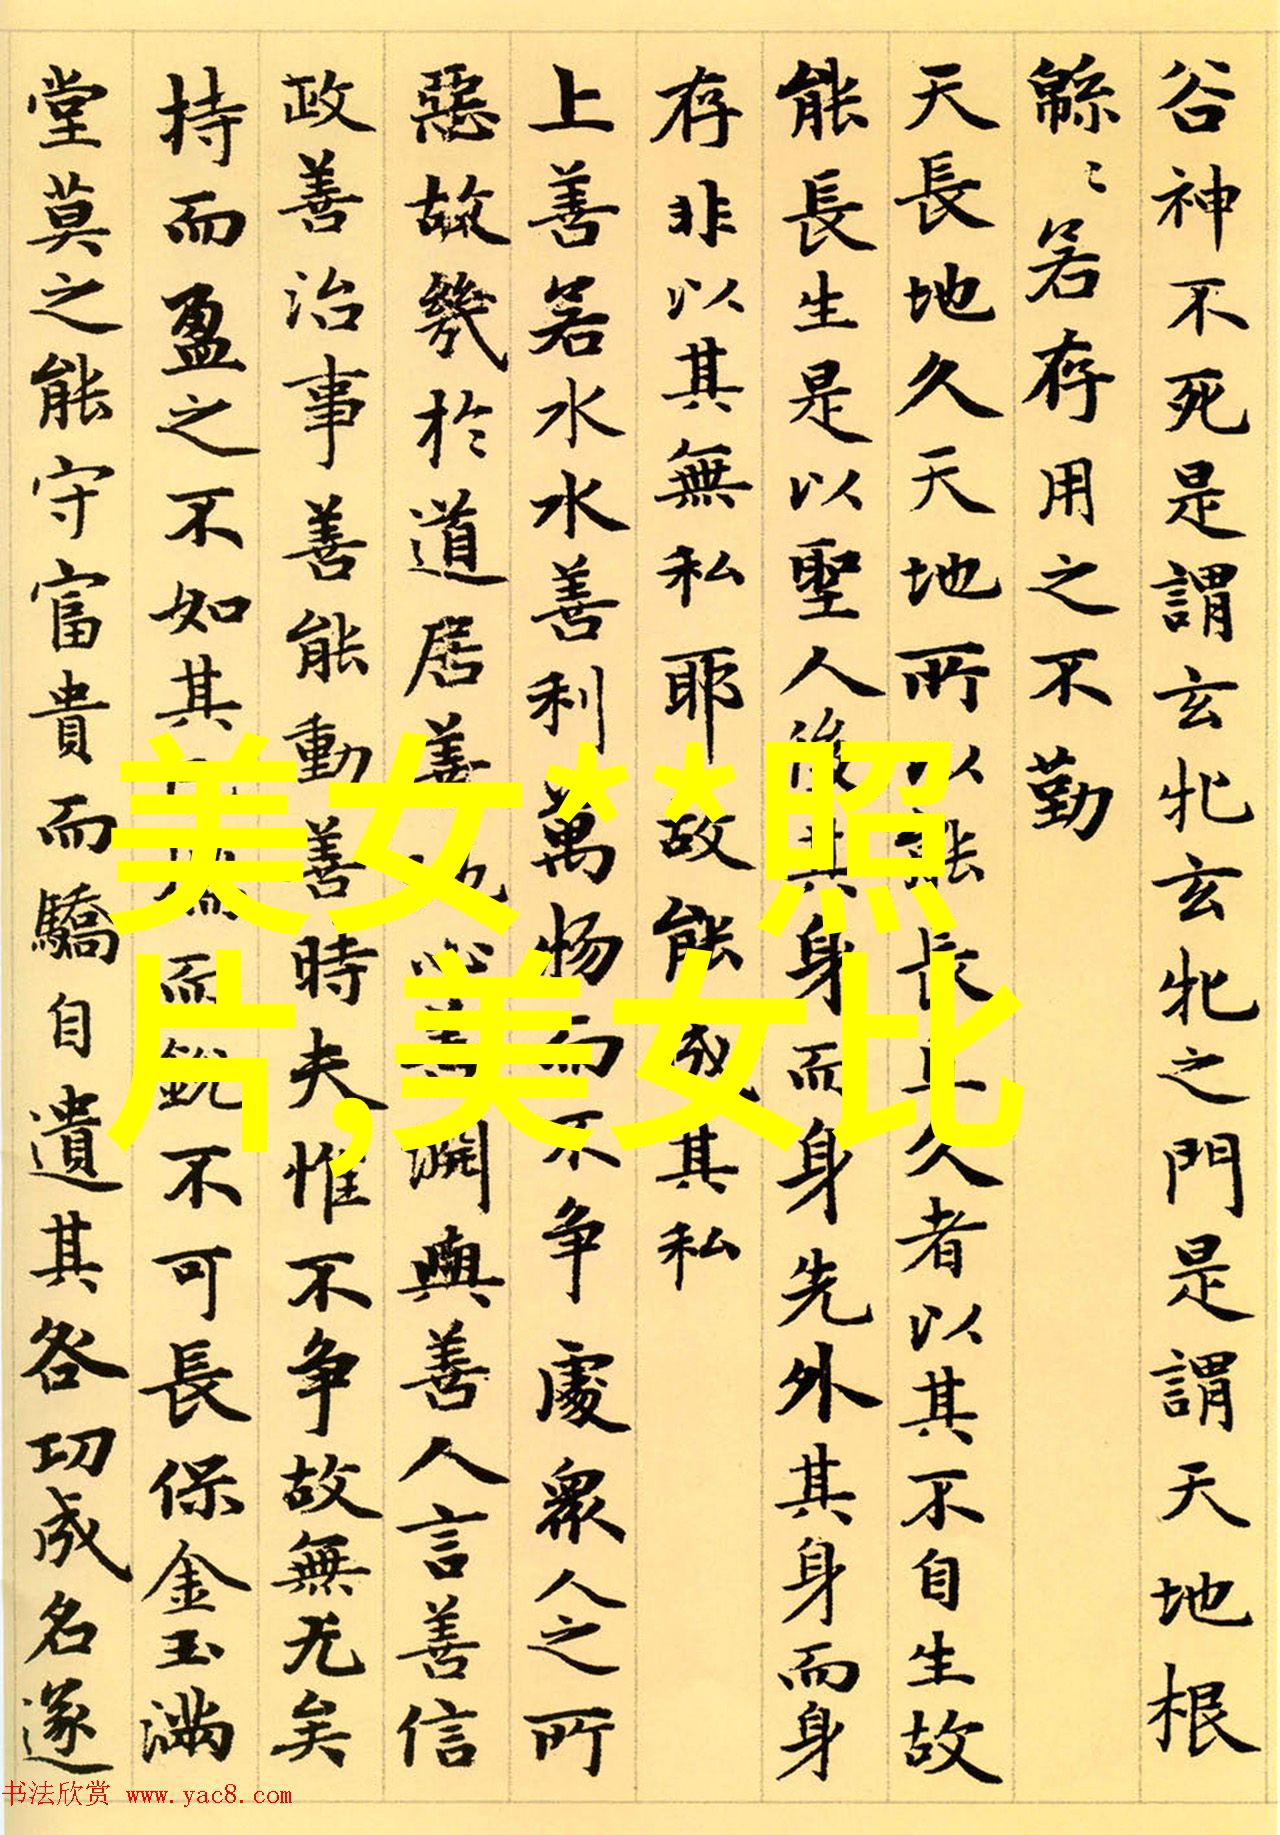 谷神不死是謂玄牝玄牝之門是謂天地根
緜〻若存用之不勤
天長地久天地所以能長且久者以其不自生故
能長生是以聖人後其身而身先外其身而身
存非以其無私耶故能成其私
上善若水水善利萬物而不争處衆人之所
惡故幾於道居善地心善渊與善人言善信
政善治事善能動善時夫惟不争故無尤矣
持而盈之不如其已揣而銳不可長保金玉滿
堂莫之能守富貴而驕自遺其咎功成名遂
美女**照
片,美女比
书法欣赏 www.yac8.com